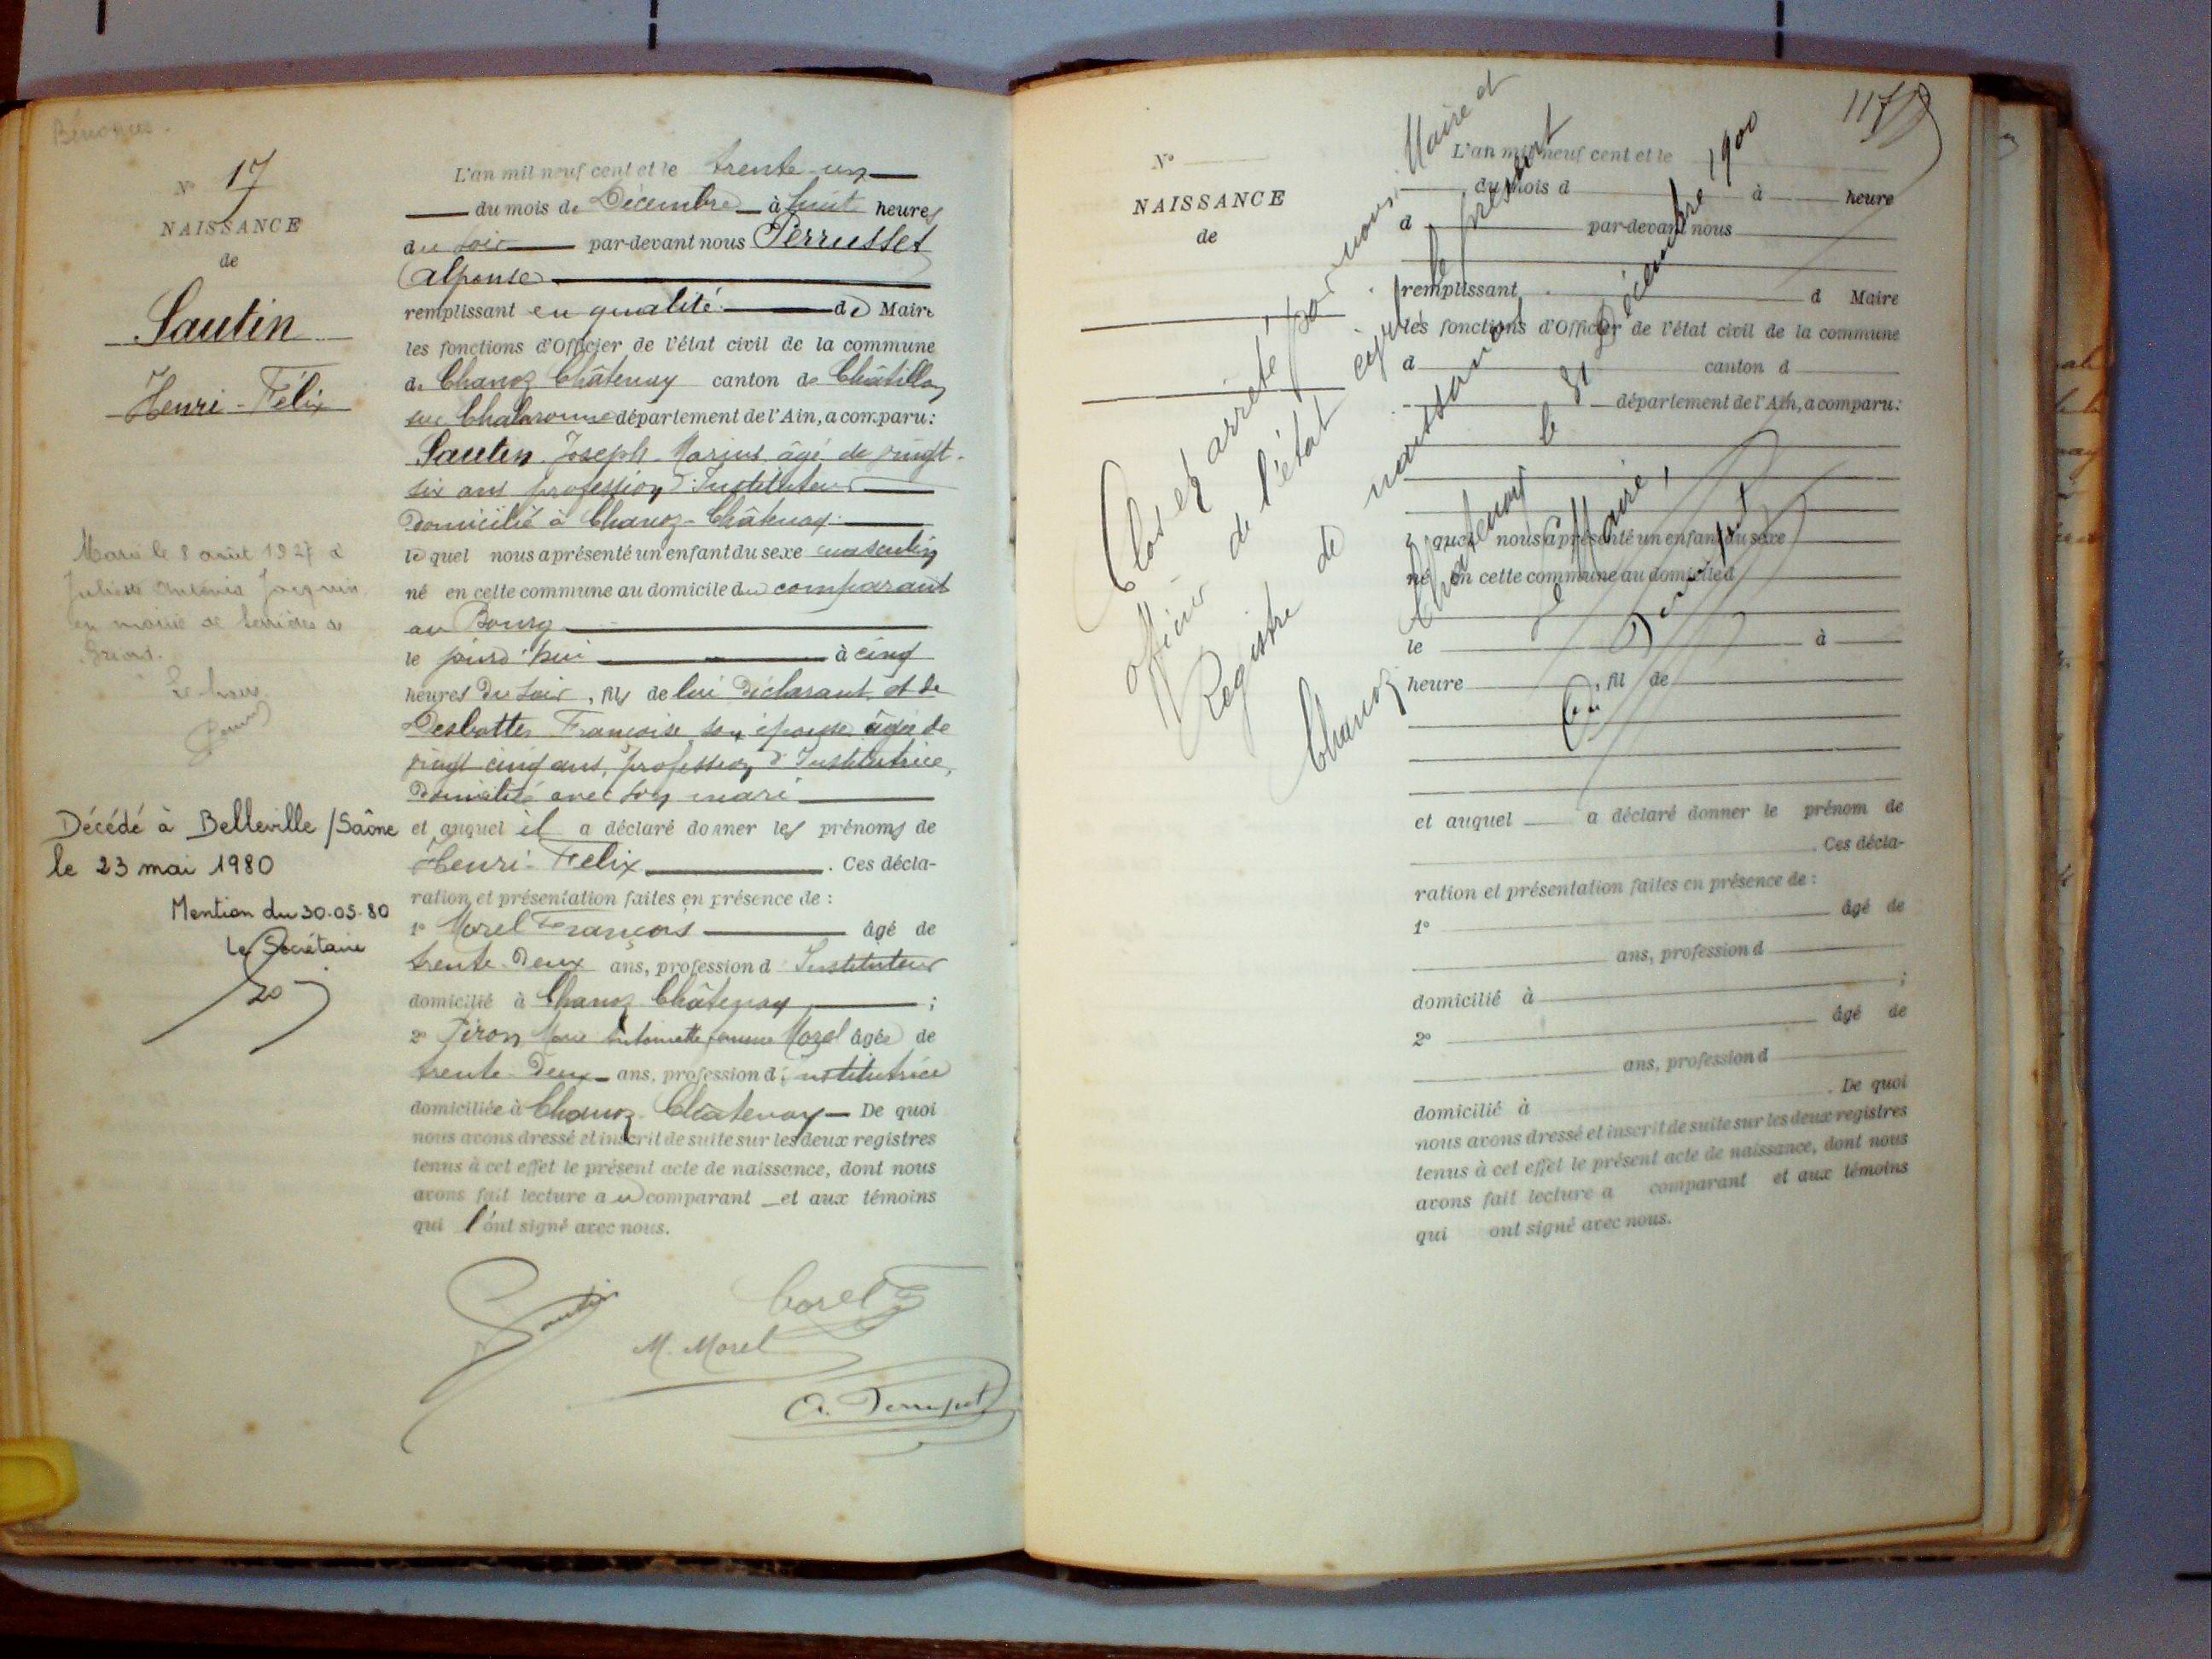 N° 17
NAISSANCE
de
Sautin
Henri-Félix
Marié le 8 août 1927 à
en mairie de
Le Maire
Décédé à Belleville/Saône
le 23 mai 1980
Mention du 30.05.80
Le Secrétaire
L'an mil neuf cent et le trente-un
du mois de Décembre à huit heures
du soir par-devant nous Perrusset
Alponse
remplissant en qualité de Maire
les fonctions d'Officier de l'état civil de la commune
de Chanoz Châtenay canton de Châtillon
sur Chalaronne département de l'Ain, a comparu :
Sautin Joseph-Marius âgé de vingt-
six ans profession d'Instituteur
Domicilié à Chanoz-Châtenay
lequel nous a présenté un enfant du sexe masculin
né en cette commune au domicile du comparant
au Bourg
le jourd'hui à cinq
heures du soir, fils de lui déclarant et de
Desbottes Françoise son épouse âgée de
vingt cinq ans, profession d'Institutrice,
Domiciliée avec son mari
et auquel il a déclaré donner les prénoms de
Henri-Félix. Ces décla-
ration et présentation faites en présence de :
1° Morel François âgé de
trente-Deux ans, profession d'Instituteur
domicilié à Chanoz Châtenay ;
2° Piron Marie Antoinette femme Morel âgée de
trente-Deux ans, profession d'institutrice
domiciliée à Chanoz Châtenay De quoi
nous avons dressé et inscrit de suite sur les deux registres
tenus à cet effet le présent acte de naissance, dont nous
avons fait lecture au comparant et aux témoins
qui l'ont signé avec nous.
Sautin
Morel F
M. Morel
A. Perrusset
117
N°
NAISSANCE
de
L'an mil neuf cent et le
du mois d à heure
d par-devant nous
remplissant d Maire
les fonctions d'Officier de l'état civil de la commune
d canton d
département de l'Ain, a comparu :
quel nous a présenté un enfant du sexe
né en cette commune au domicile d
le à
heure, fil de
et auquel a déclaré donner le prénom de
. Ces décla-
ration et présentation faites en présence de :
1° âgé de
ans, profession d
domicilié à ;
2° âgé de
ans, profession d
domicilié à . De quoi
nous avons dressé et inscrit de suite sur les deux registres
tenus à cet effet le présent acte de naissance, dont nous
avons fait lecture a comparant et aux témoins
qui ont signé avec nous.
Clos et arrêté par nous, Maire et
officier de l'état civil le présent
Registre de naissances
Chanoz Châtenay le 31 Décembre 1900
Le Maire,
A. Perrusset